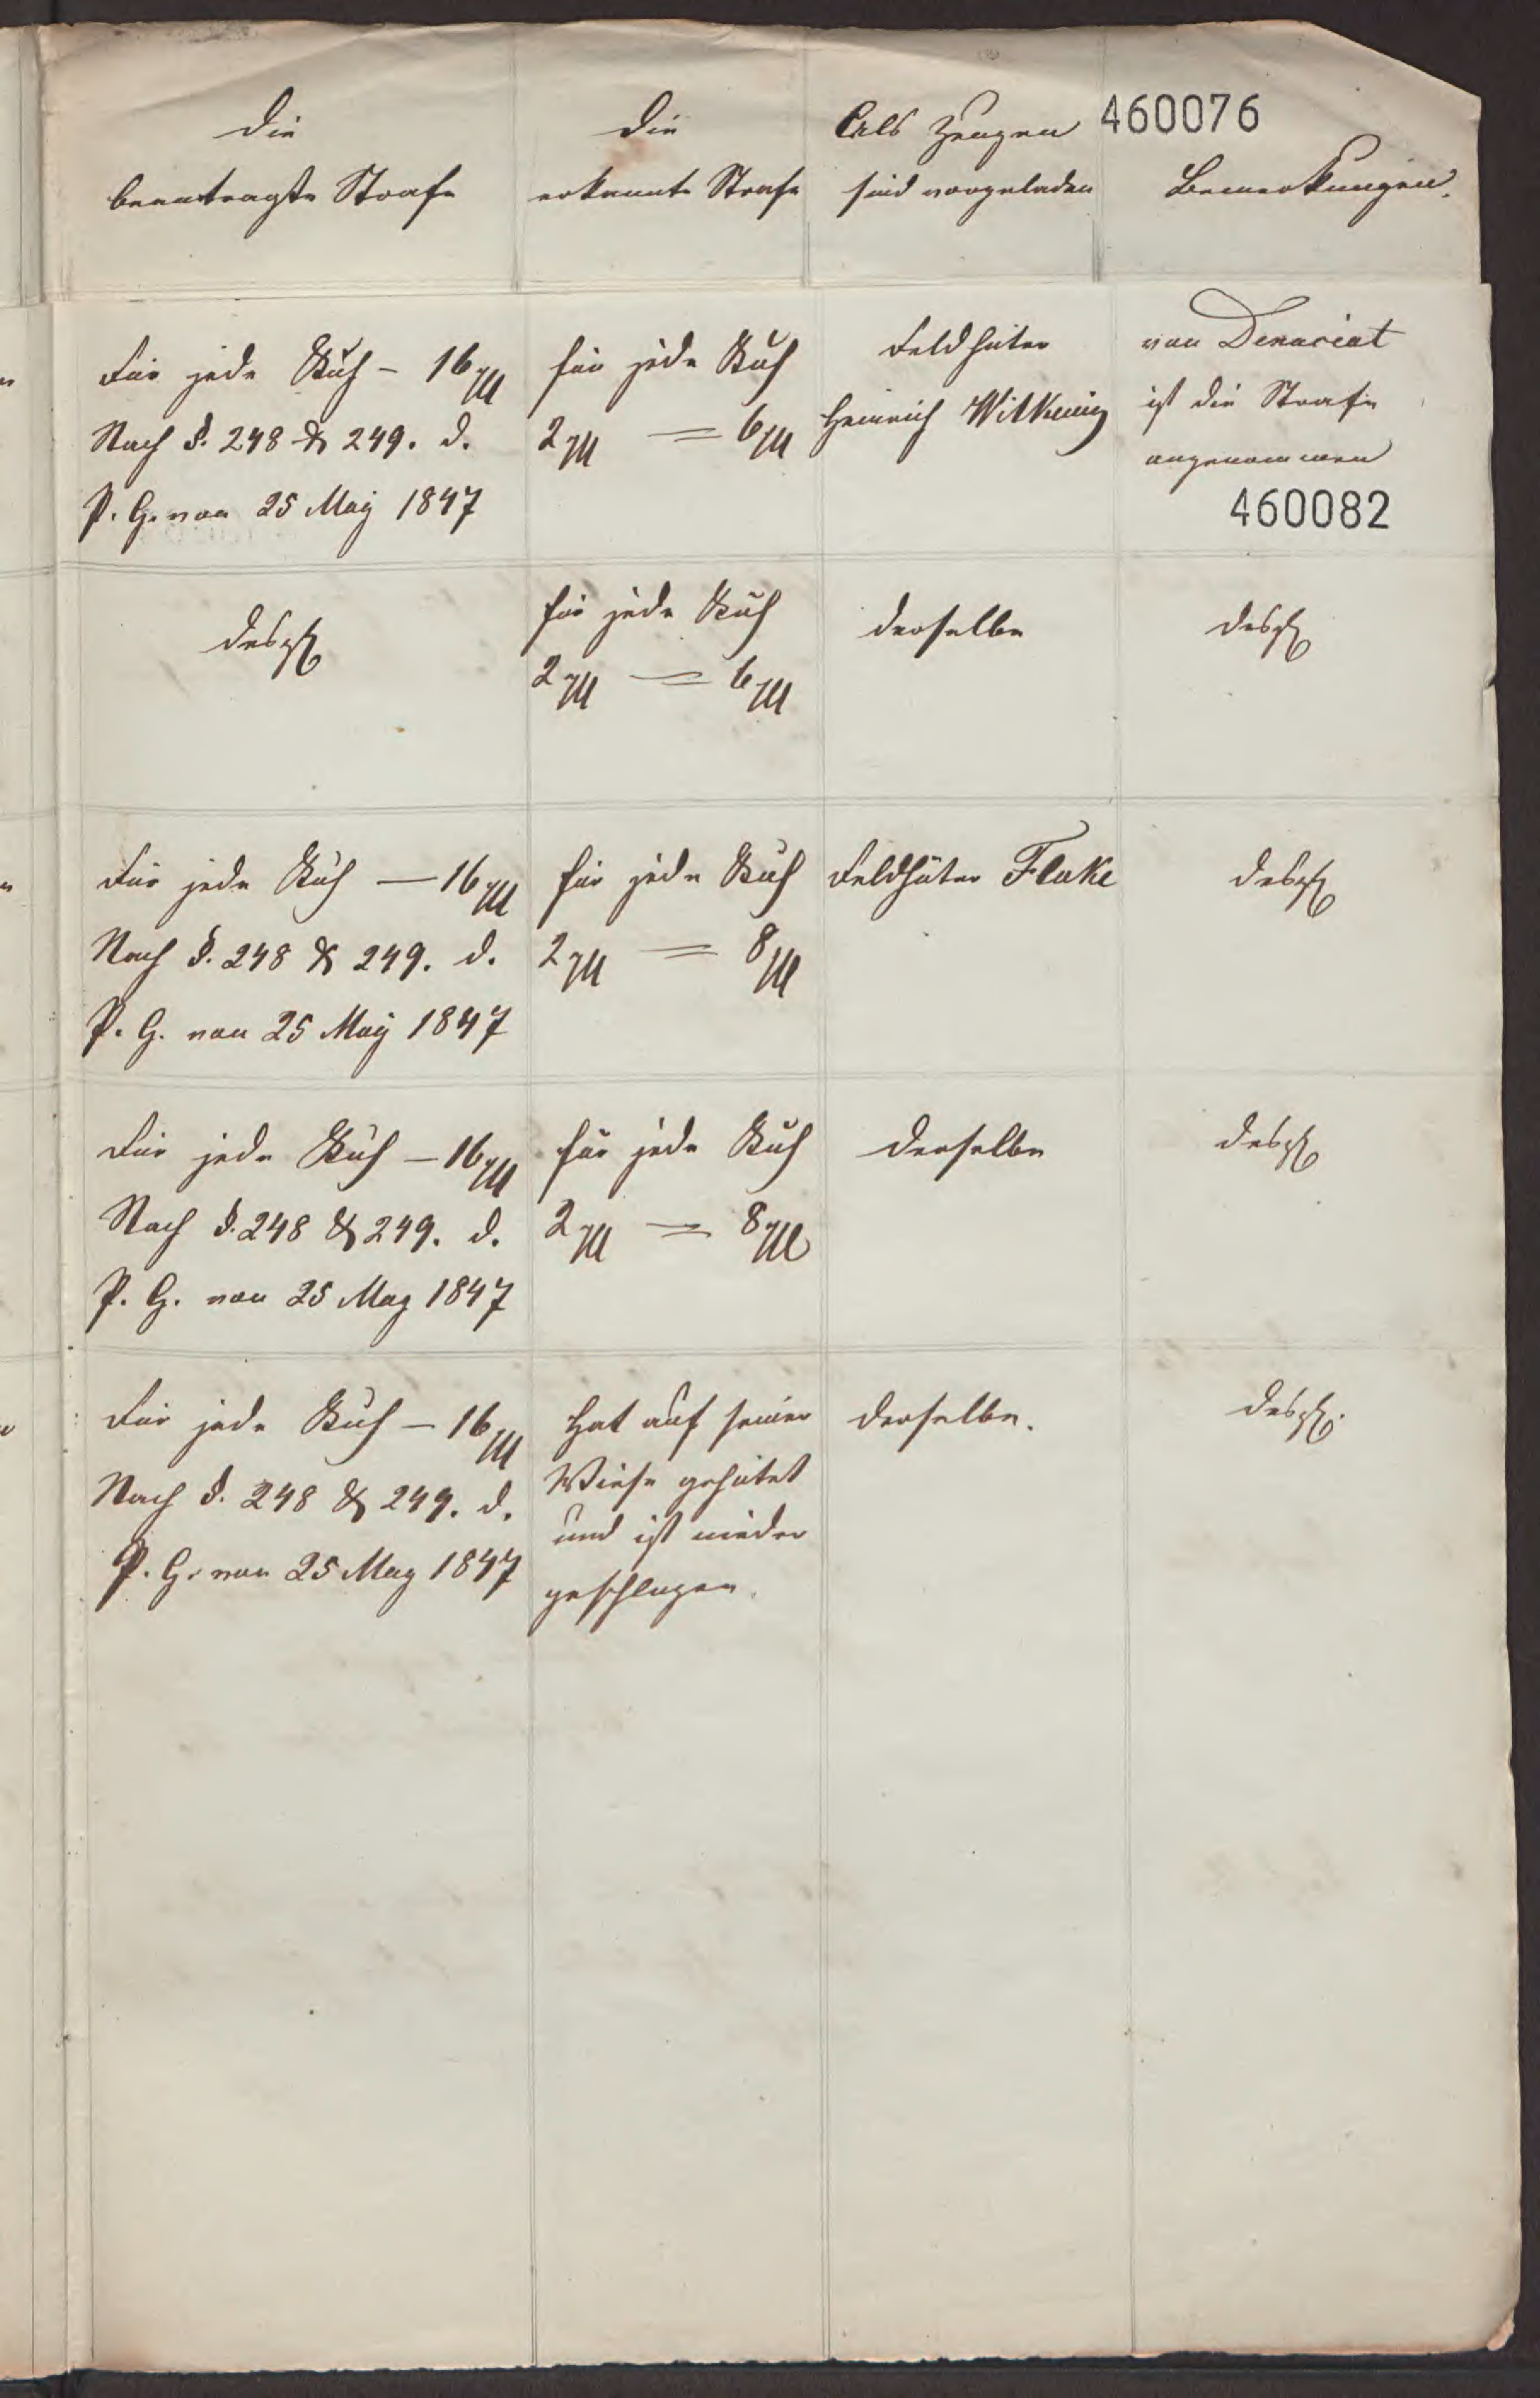 Die
beantragte Strafe
Die
erkannte Strafe
Als Zeugen
sind vorgeladen
460076
Bemerkungen.
Für jede Kuh - 16
Nach §. 248 & 249. d.
P. G. von 25 May 1847
für jede Kuh
2 = 6
Feldhüter
Heinrich Wilkening
von Denunciat
ist die Strafe
angenommen
460082
desgl
für jede Kuh
2 = 6
derselbe
desgl
Für jede Kuh — 16
Nach §. 248 & 249. d.
P. G. von 25 May 1847
für jede Kuh
2 = 8
Feldhüter Flake
desgl
Für jede Kuh — 16
Nach §. 248 & 249. d.
P. G. von 25 May 1847
für jede Kuh
2 = 8
derselbe
desgl
Für jede Kuh — 16
Nach §. 248 & 249. d.
P. G. von 25 May 1847
Hat auf seiner
Wiese gehütet
und ist nieder
geschlagen.
derselbe.
desgl.